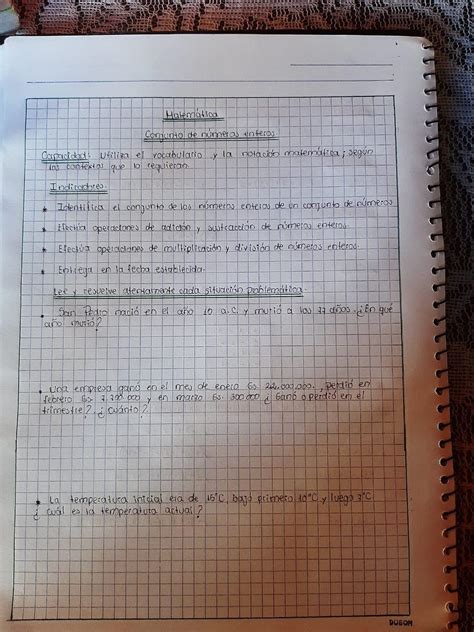 Matemática
Conjunto de números enteros
Capacidad: Utiliza el vocabulario y la notación matemática, según
los contextos que lo requieran.
Indicadores:
• Identifica el conjunto de los números enteros de un conjunto de números
• Efectúa operaciones de adición y sustracción de números enteros.
• Efectúa operaciones de multiplicación y división de números enteros.
• Entrega en la fecha establecida.
Lee y resuelve atentamente cada situación problemática.
• San Pedro nació en el año 10 a.C y murió a los 77 años. ¿En qué
año murió?
• Una empresa ganó en el mes de enero Gs. 22.000.000., perdió en
febrero Gs 7.700 000 y en marzo Gs. 300 000 ¿ Ganó o perdió en el
trimestre?. ¿ Cuánto?
• La temperatura inicial era de 15°C, bajó primero 10°C y luego 7°C
¿ Cuál es la temperatura actual?